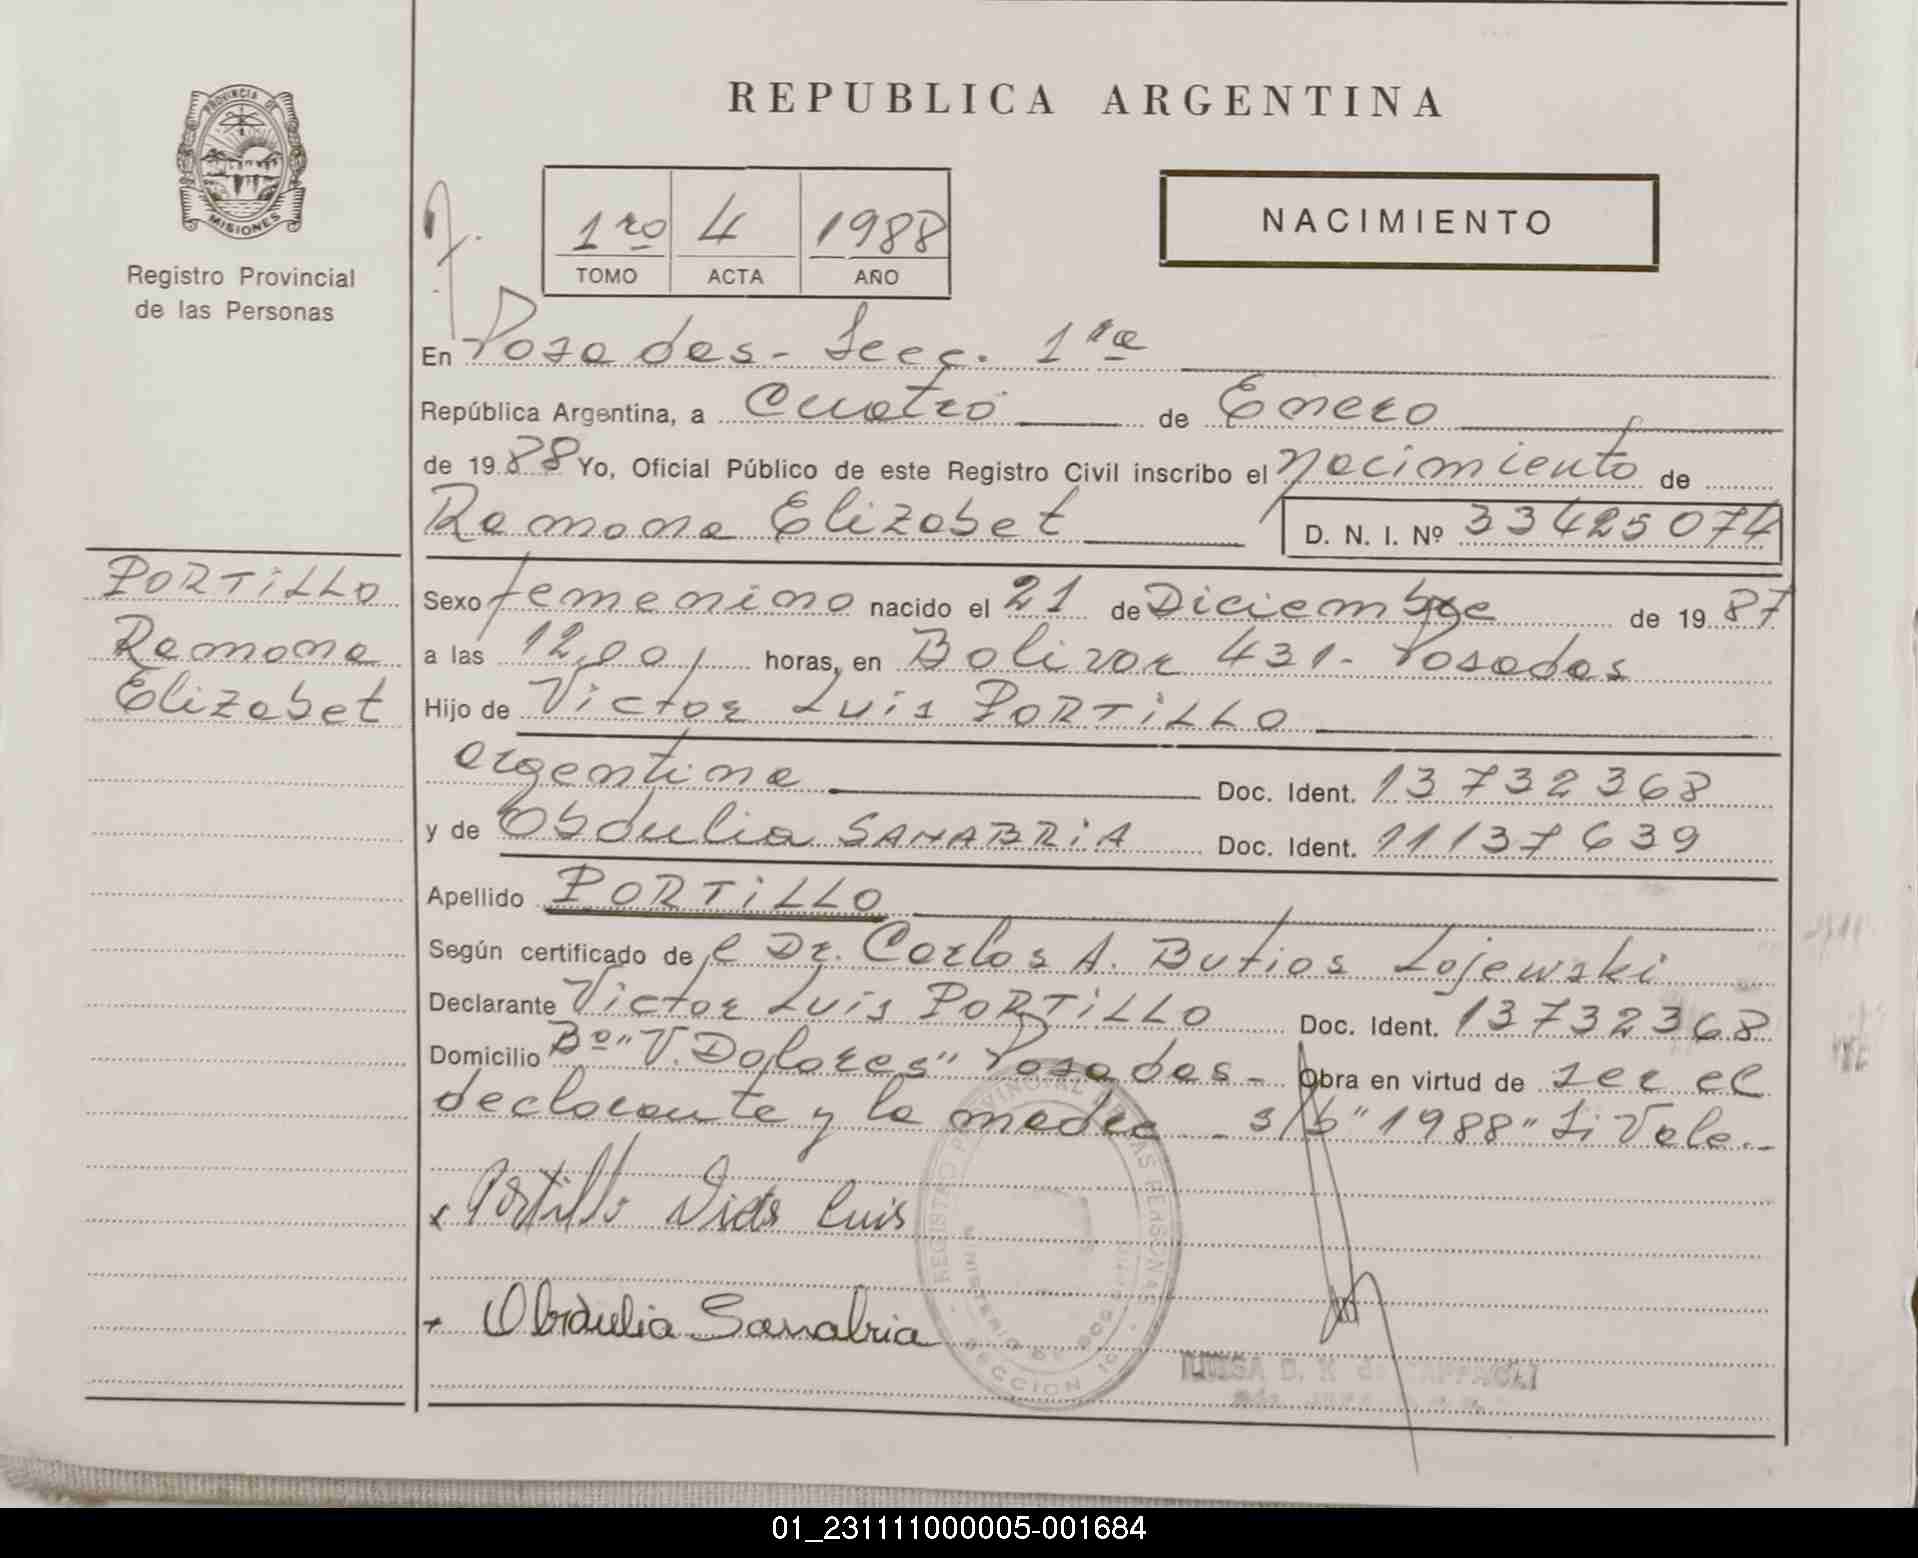 REPUBLICA ARGENTINA
PROVINCIA DE
MISIONES
Registro Provincial
de las Personas
1ro 4 1988
TOMO ACTA AÑO
NACIMIENTO
En Posadas - Secc. 1ra
República Argentina, a Cuatro de Enero
de 1988 Yo, Oficial Público de este Registro Civil inscribo el nacimiento de
Ramona Elizabet D. N. I. Nº 33425074
PORTILLO
Ramona
Elizabet
Sexo femenino nacido el 21 de Diciembre de 1987
a las 12,00 horas, en Bolivar 431 - Posadas
Hijo de Victor Luis PORTILLO
argentina Doc. Ident. 13732368
y de Obdulia SANABRIA Doc. Ident. 11137639
Apellido PORTILLO
Según certificado de el Dr. Carlos A. Butios Lojewski
Declarante Victor Luis PORTILLO Doc. Ident. 13732368
Domicilio Bº "V. Dolores" Posadas - Obra en virtud de ser el
declarante y la madre - s/b "1988" Si Vale.-
x Portillo Victor Luis
REGISTRO PROVINCIAL DE LAS PERSONAS
MINISTERIO DE
SECCION 1
+ Obdulia Sanabria
01_231111000005-001684